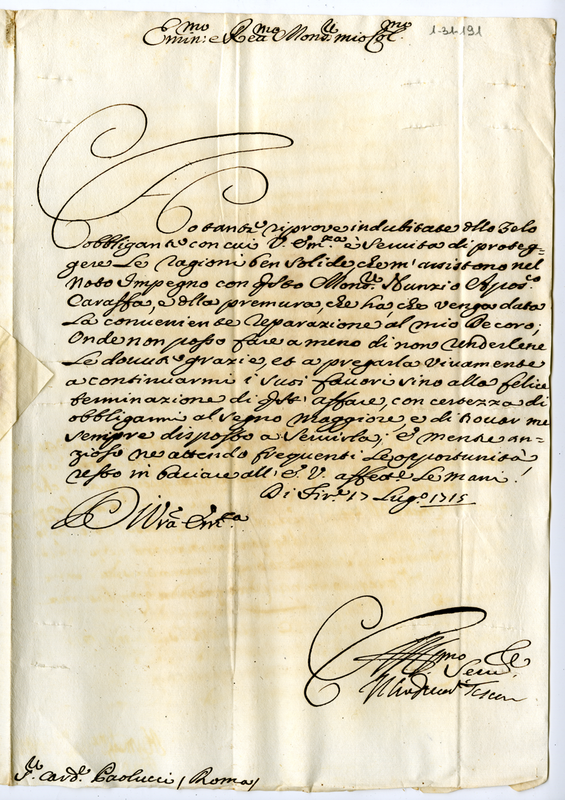 Emin:mo e Rea:mo Mons.r mio Col.mo
1-31-191
Ho tante riprove indubitate dello Zelo
obbligante con cui V. Em.za è servita di proteg=
gere le ragioni ben solide che m'assistono nel
noto Impegno con questo Mons.r Nunzio Apos.co
Caraffa, e della premura, che ha, che venga data
la conveniente reparazione al mio Decoro,
Onde non posso fare a meno di non renderlene
le dovute grazie, et a pregarla vivamente
a continuarmi i suoi favori sino alla felice
terminazione di quest' affare, con certezza di
obbligarmi al segno maggiore, e di trovarme
sempre disposto a servirla; e mentre an=
zioso ne attendo frequenti le opportunità
resto in baciare all' E. V. affett.e le mani.
Di Fir.e 17 Lug.o 1715
Di Vra Em.za
Aff.mo Serv.
S.r Card.l Paolucci (Roma)